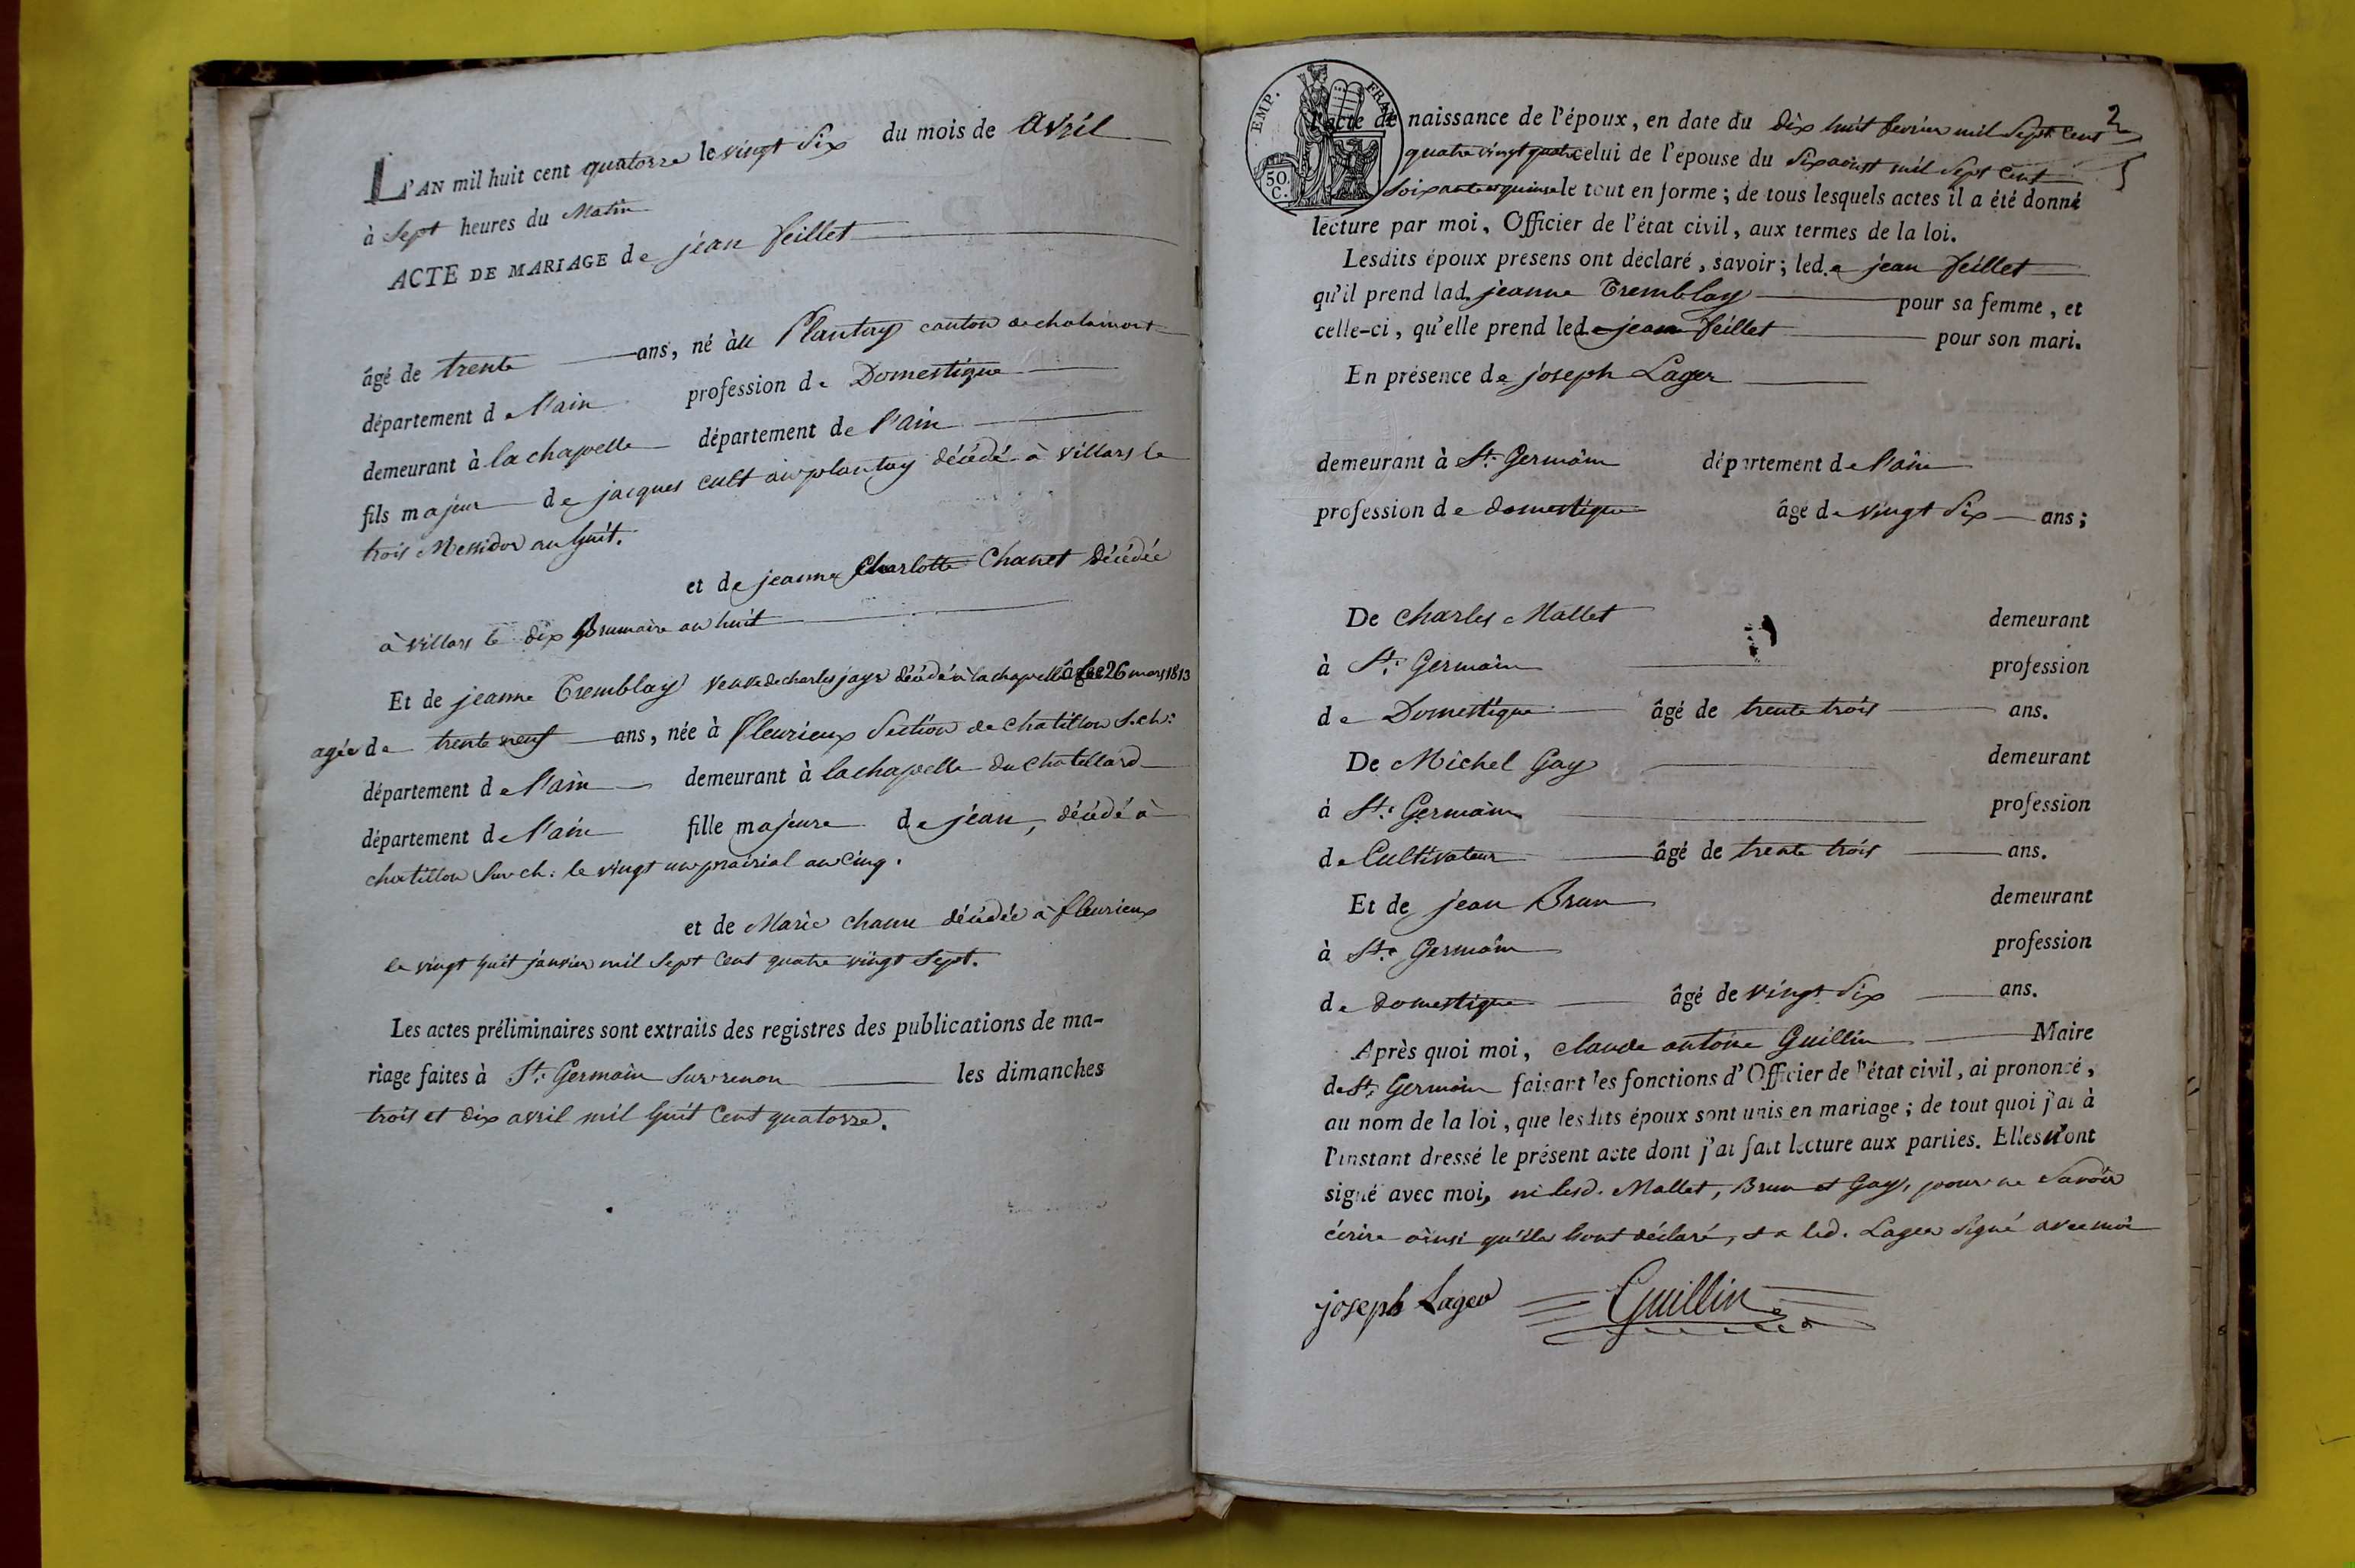 L'AN mil huit cent quatorze le vingt six du mois de Avril
à Sept heures du Matin
ACTE DE MARIAGE de jean feillet
âgé de trente ans, né au Plantay canton de chalamont
département de l'ain profession de Domestique
demeurant à la chapelle département de l'ain
fils majeur de jacques cult au plantay décédé à villars le
trois Messidor an huit.
et de jeanne Charlotte Chanet décédée
à villars le dix Brumaire an huit
Et de jeanne Tremblay veuve de charles jayr décédé à la chapelle le 26 mars 1813
agée de trente neuf ans, née à fleurieux Section de chatillon S. ch:
département de l'ain demeurant à la chapelle du chatellard
département de l'ain fille majeure de jean, décédé à
chatillon Sur ch: le vingt un prairial an cinq.
et de Marie chanu décédée à fleurieux
le vingt huit janvier mil Sept Cent quatre vingt Sept.
Les actes préliminaires sont extraits des registres des publications de ma-
riage faites à St. Germain Sur renon les dimanches
trois et dix avril mil huit Cent quatorze.
2
EMP. FRAN
50 C.
l'acte de naissance de l'époux, en date du dix huit fevrier mil Sept Cent
quatre vingt quatre celui de l'épouse du Six aoust mil Sept Cent
Soixante et quinze le tout en forme; de tous lesquels actes il a été donné
lecture par moi, Officier de l'état civil, aux termes de la loi.
Lesdits époux présens ont déclaré, savoir; led. jean feillet
qu'il prend lad. jeanne Tremblay pour sa femme, et
celle-ci, qu'elle prend led. jean feillet pour son mari.
En présence de joseph Lager
demeurant à St. Germain département de l'ain
profession de domestique âgé de vingt Six ans;
De charles Mallet demeurant
à St. Germain profession
de Domestique âgé de trente trois ans.
De Michel Gay demeurant
à St. Germain profession
de Cultivateur âgé de trente trois ans.
Et de jean Brun demeurant
à St. Germain profession
de domestique âgé de vingt Six ans.
Après quoi moi, claude antoine Guillin Maire
de St. Germain faisant les fonctions d'Officier de l'état civil, ai prononcé,
au nom de la loi, que lesdits époux sont unis en mariage; de tout quoi j'ai à
l'instant dressé le présent acte dont j'ai fait lecture aux parties. Elles n'ont
signé avec moi, ni lesd. Mallet, Brun et Gay, pour ne Savoir
écrire ainsi qu'ils l'ont déclaré, et a led. Lager Signé avec moi
joseph Lager Guillin